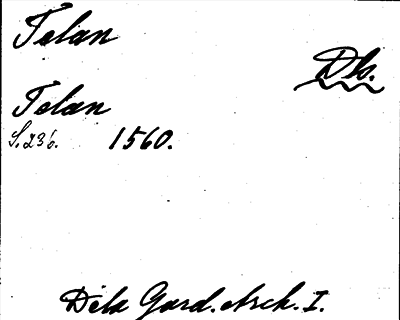 Telan
Db.
Telan
S. 236. 1560.
Dela Gard. Arch. I.